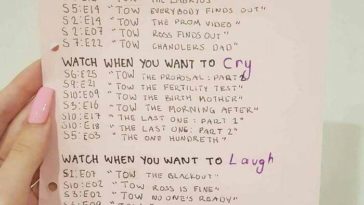 S5:E14 "TOW EVERYBODY FINDS OUT"
S2:E14 "TOW THE PROM VIDEO"
S2:E07 "TOW ROSS FINDS OUT"
S7:E22 "TOW CHANDLERS DAD"
WATCH WHEN YOU WANT TO Cry
S6:E25 "TOW THE PROPOSAL: PART 2
S9:E21 "TOW THE FERTILITY TEST"
S10:E09 "TOW THE BIRTH MOTHER"
S3:E16 "TOW THE MORNING AFTER"
S10:E17 "THE LAST ONE: PART 1"
S10:E18 "THE LAST ONE: PART 2"
S5:E03 "THE ONE HUNDRETH"
WATCH WHEN YOU WANT TO Laugh
S1:E07 "TOW THE BLACKOUT"
S10:E02 "TOW ROSS IS FINE"
S3:E02 "TOW NO ONE'S READY"